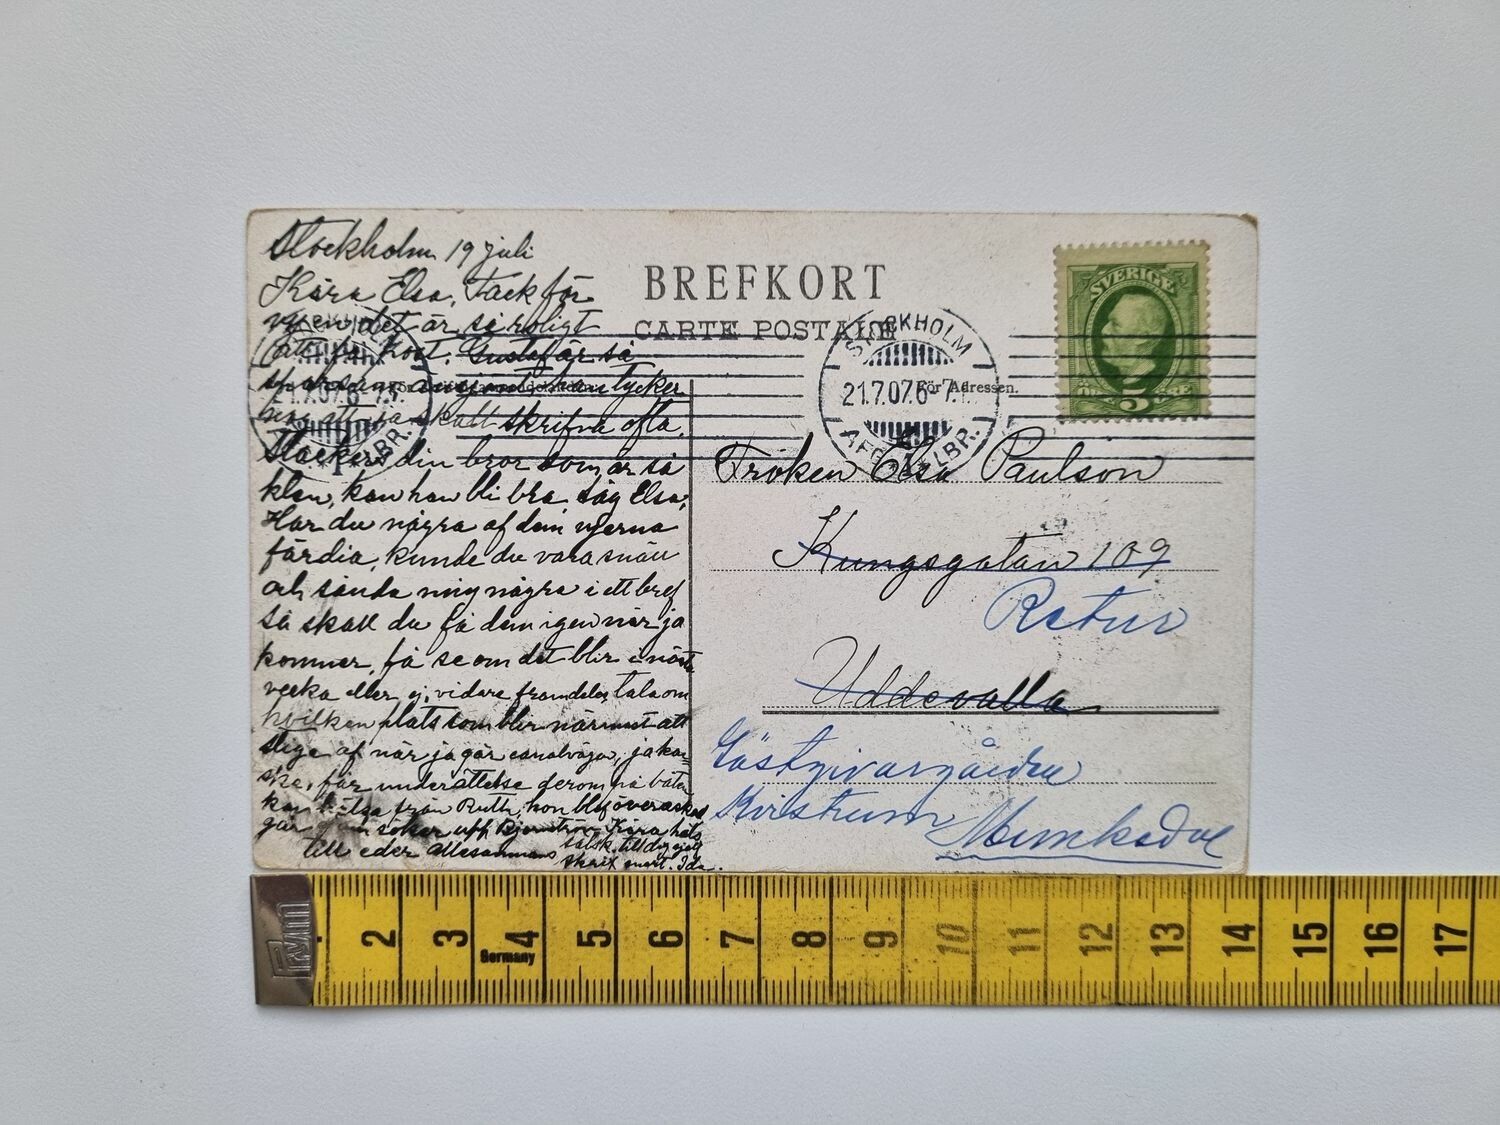 Stockholm 19 juli
Kära Elsa, Tack för
vyen det är så roligt
att få kort. Gustaf är så
han tycker
att ja skall skrifva ofta.
Stackers din bror som är så
klen, kan han bli bra säg Elsa,
Har du några af dem vyerna
färdia, kunde du vara snäll
och sända mig några i ett bref
så skall du få dem igen när ja
kommer, få se om det blir i nästa
vecka eller ej, vidare framdeles, tala om
hvilken plats som blir närmast att
stiga af när ja går canalvägen, ja kan-
ske, får underättelse derom på båten
kan hälsa från Ruth, hon blef överaskad
söker upp Kära häls
till eder allesammans
till dig sjelf
skrif snart. Ida.
BREFKORT
CARTE POSTALE
STOCKHOLM
21.7.07.6-7.
AFG.
LBR.
21.7.07.6-7.
LBR.
För Adressen.
SVERIGE
5
Fröken Elsa Paulson
Kungsgatan 109
Retur
Uddevalla
Gästgivargården
Kvistrum
Munkedal
2 3 4 5 6 7 8 9 10 11 12 13 14 15 16 17
Germany